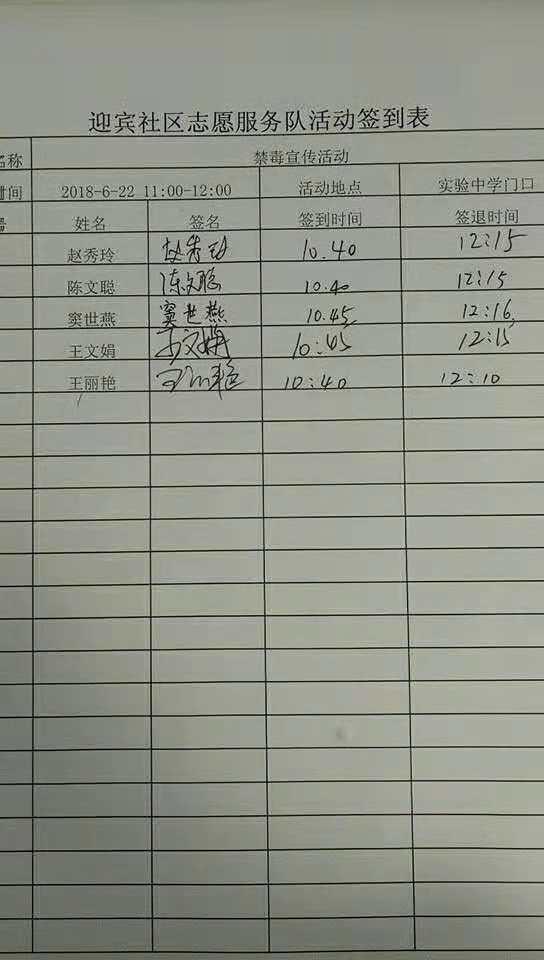 迎宾社区志愿服务队活动签到表
名称 禁毒宣传活动
时间 2018-6-22 11:00-12:00 活动地点 实验中学门口
姓名 签名 签到时间 签退时间
赵秀玲 赵秀玲 10.40 12:15
陈文聪 陈文聪 10.40 12:15
窦世燕 窦世燕 10.45 12:16
王文娟 王文娟 10:45 12:15
王丽艳 王丽艳 10:40 12:10